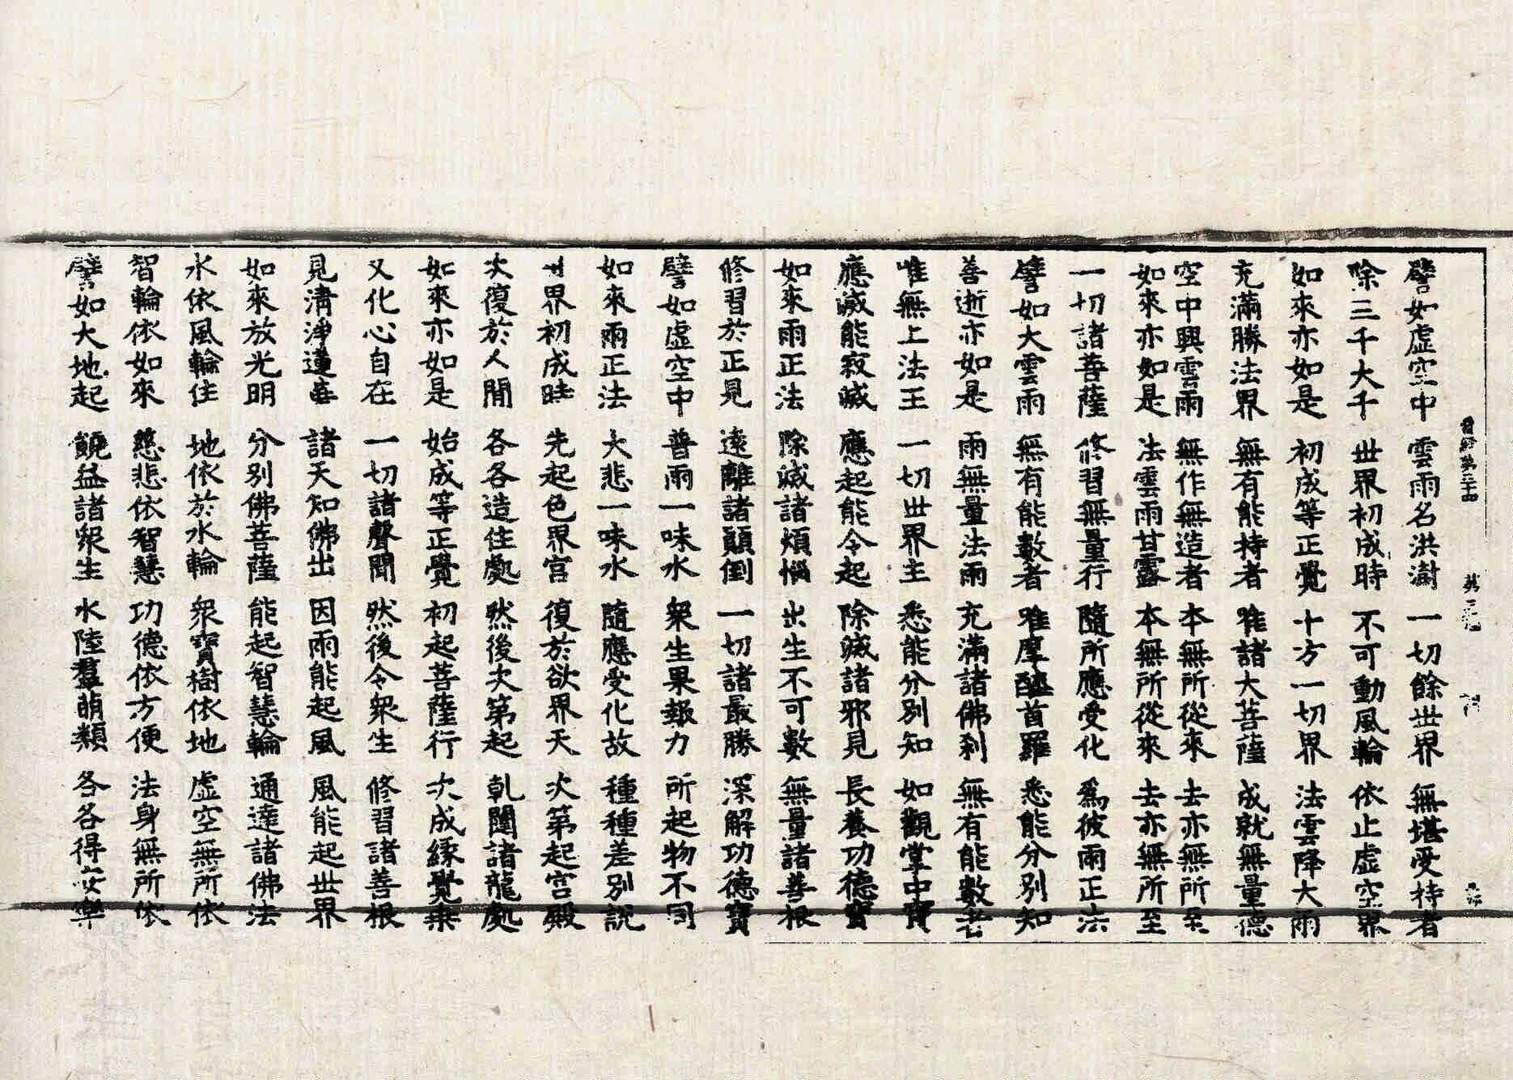 譬如虛空中 雲雨名洪澍 一切餘世界 無堪受持者
除三千大千 世界初成時 不可動風輪 依止虛空界
如來亦如是 初成等正覺 十方一切界 法雲降大雨
充滿勝法界 無有能持者 唯諸大菩薩 成就無量德
空中興雲雨 無作無造者 本無所從來 去亦無所至
如來亦如是 法雲雨甘露 本無所從來 去亦無所至
一切諸菩薩 修習無量行 隨所應受化 爲彼雨正法
譬如大雲雨 無有能數者 唯摩醯首羅 悉能分別知
善逝亦如是 雨無量法雨 充滿諸佛刹 無有能數者
唯無上法王 一切世界主 悉能分別知 如觀掌中寶
應滅能寂滅 應起能令起 除滅諸邪見 長養功德寶
如來雨正法 除滅諸煩惱 出生不可數 無量諸善根
修習於正見 遠離諸顛倒 一切諸最勝 深解功德寶
譬如虛空中 普雨一味水 衆生果報力 所起物不同
如來雨正法 大悲一味水 隨應受化故 種種差別說
世界初成時 先起色界宮 復於欲界天 次第起宮殿
次復於人間 各各造住處 然後次第起 乹闥諸龍處
如來亦如是 始成等正覺 初起菩薩行 次成緣覺乗
又化心自在 一切諸聲聞 然後令衆生 修習諸善根
見清淨蓮華 諸天知佛出 因雨能起風 風能起世界
如來放光明 分別佛菩薩 能起智慧輪 通達諸佛法
水依風輪住 地依於水輪 衆寶樹依地 虛空無所依
智輪依如來 慈悲依智慧 功德依方便 法身無所依
譬如大地起 饒益諸衆生 水陸羣萌類 各各得安樂